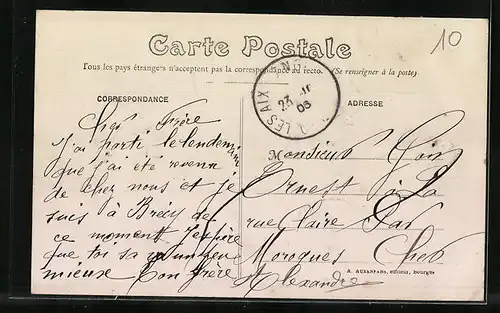 10
Carte Postale
Tous les pays étrangers n'acceptent pas la correspondance au recto. (Se renseigner à la poste)
CORRESPONDANCE
ADRESSE
LES AIX
23
06
Cher Frère
J'ai parti le lendemain
que j'ai été revenu
de chez nous et je
suis à Brécy de
ce moment J'espère
que toi sa
mieuse Ton frère
Alexandre
Monsieur
Ernest à La
rue Claire Par
Moroques Cher
A. AUXENFANS, éditeur, Bourges